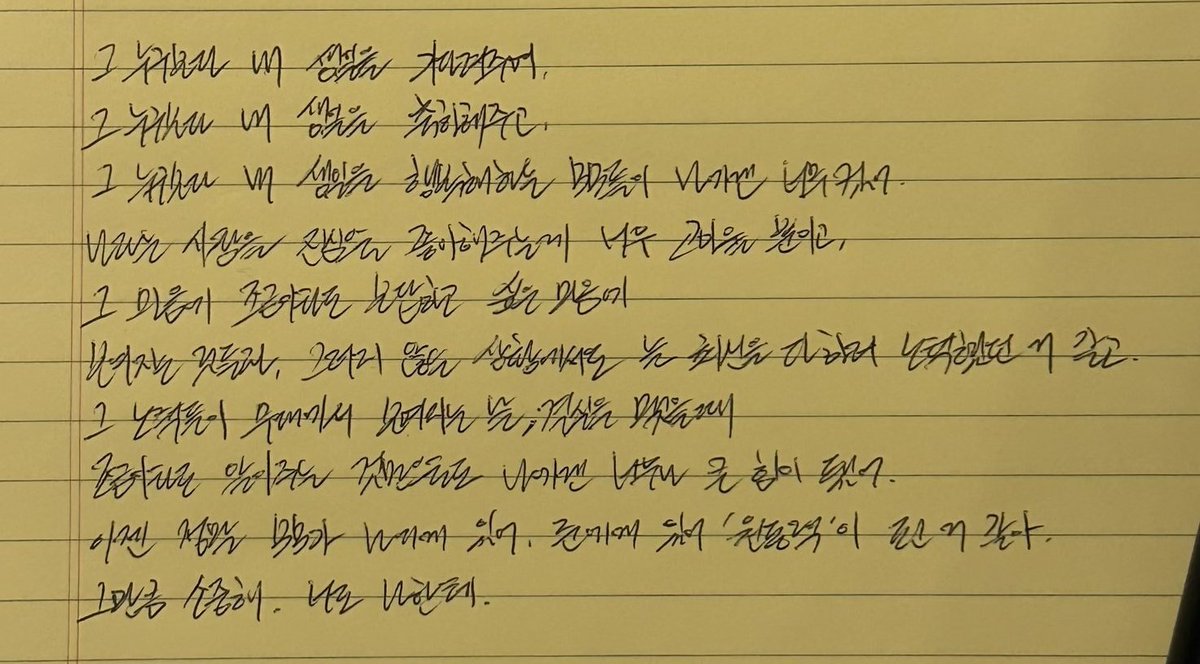 그 누구보다 내 생일을 기다려주며,
그 누구보다 내 생일을 축하해주고,
그 누구보다 내 생일을 행복해하는 몬목들이 나에겐 너무 커서.
나라는 사람을 진심으로 좋아해주는게 너무 고마울 뿐이고,
그 마음에 조금이라도 보답하고 싶은 마음에
보여지는 것들과, 그러지 않은 상황에서도 늘 최선을 다하려 노력했던 거 같고.
그 노력들이 무대에서 보여지는 날, 결실을 맺을때
조금이라도 알아주는 것만으로도 나에겐 너무나 큰 힘이 됐어.
이젠 정말 가 나에게 있어, 에게 있어 '원동력'이 된 거 같아.
그만큼 소중해. 너도 나한테.